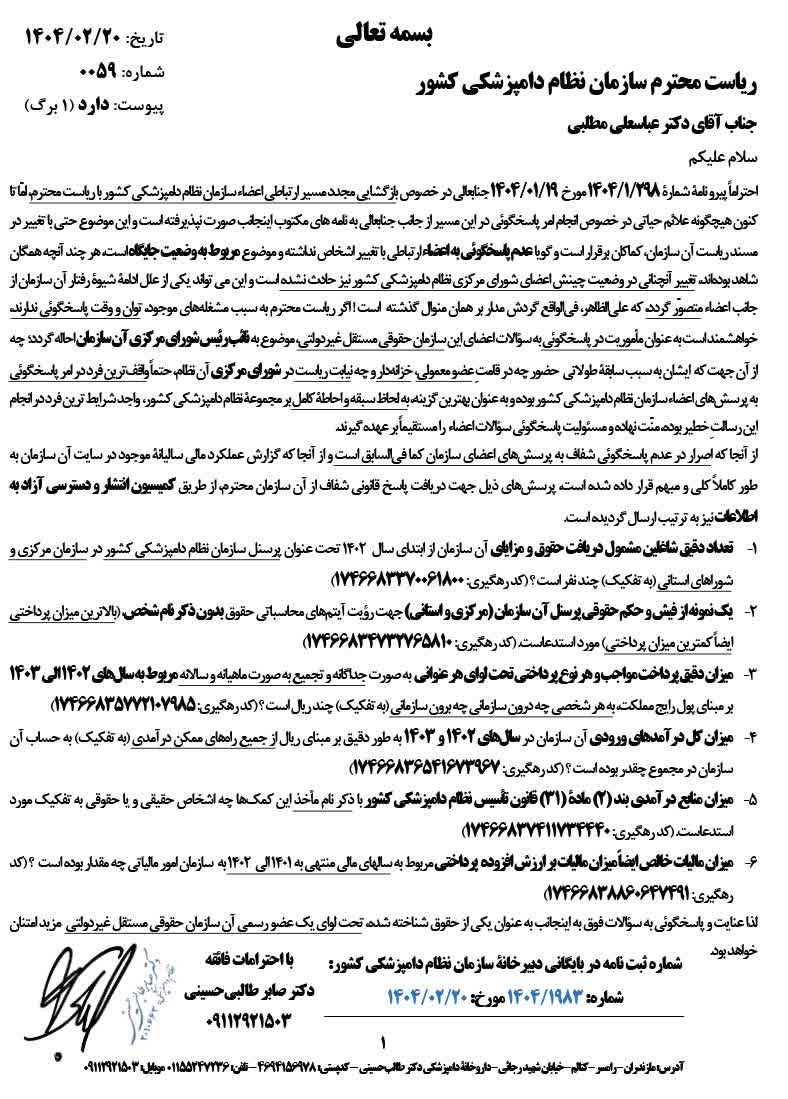 بسمه تعالی
تاریخ: ۱۴۰۴/۰۲/۲۰
شماره: ۰۰۵۹
پیوست: دارد (۱ برگ)
ریاست محترم سازمان نظام دامپزشکی کشور
جناب آقای دکتر عباسعلی مطلبی
سلام علیکم
احتراماً پیرو نامۀ شمارۀ ۱۴۰۴/۱/۲۹۸ مورخ ۱۴۰۴/۰۱/۱۹ جنابعالی در خصوص بازگشایی مجدد مسیر ارتباطی اعضاء سازمان نظام دامپزشکی کشور با ریاست محترم، امّا تا
کنون هیچگونه علائم حیاتی در خصوص انجام امر پاسخگوئی در این مسیر از جانب جنابعالی به نامه های مکتوب اینجانب صورت نپذیرفته است و این موضوع حتی با تغییر در
مسند ریاست آن سازمان، کماکان برقرار است و گویا عدم پاسخگوئی به اعضاء ارتباطی با تغییر اشخاص نداشته و موضوع مربوط به وضعیت جایگاه است، هر چند آنچه همگان
شاهد بوده‌اند، تغییر آنچنانی در وضعیت چینش اعضای شورای مرکزی نظام دامپزشکی کشور نیز حادث نشده است و این می تواند یکی از علل ادامۀ شیوۀ رفتار آن سازمان از
جانب اعضاء متصوّر گردد، که علی‌الظاهر، فی‌الواقع گردش مدار بر همان منوال گذشته است! اگر ریاست محترم به سبب مشغله‌های موجود، توان و وقت پاسخگوئی ندارند،
خواهشمند است به عنوان مأموریت در پاسخگوئی به سؤالات اعضای این سازمان حقوقی مستقل غیردولتی، موضوع به نائب رئیس شورای مرکزی آن سازمان احاله گردد؛ چه
از آن جهت که ایشان به سبب سابقۀ طولانی حضور چه در قامتِ عضو معمولی، خزانه‌دار و چه نیابت ریاست در شورای مرکزی آن نظام، حتماً واقف‌ترین فرد در امر پاسخگوئی
به پرسش‌های اعضاء سازمان نظام دامپزشکی کشور بوده و به عنوان بهترین گزینه، به لحاظ سبقه و احاطۀ کامل بر مجموعۀ نظام دامپزشکی کشور، واجد شرایط ترین فرد در انجام
این رسالتِ خطیر بوده، منّت نهاده و مسئولیت پاسخگوئی سؤالات اعضاء را مستقیماً بر عهده گیرند.
از آنجا که اصرار در عدم پاسخگوئی شفاف به پرسش‌های اعضای سازمان کما فی‌السابق است و از آنجا که گزارش عملکرد مالی سالیانۀ موجود در سایت آن سازمان به
طور کاملاً کلی و مبهم قرار داده شده است، پرسش‌های ذیل جهت دریافت پاسخ قانونی شفاف از آن سازمان محترم، از طریق کمیسیون انتشار و دسترسی آزاد به
اطلاعات نیز به ترتیب ارسال گردیده است.
۱- تعداد دقیق شاغلین مشمول دریافت حقوق و مزایای آن سازمان از ابتدای سال ۱۴۰۲ تحت عنوان پرسنل سازمان نظام دامپزشکی کشور در سازمان مرکزی و
شوراهای استانی (به تفکیک) چند نفر است؟ (کد رهگیری: ۱۷۴۶۶۸۳۳۷۰۰۶۱۸۰۰)
۲- یک نمونه از فیش و حکم حقوقی پرسنل آن سازمان (مرکزی و استانی) جهت رؤیت آیتم‌های محاسباتی حقوق بدون ذکر نام شخص، (بالاترین میزان پرداختی
ایضاً کمترین میزان پرداختی) مورد استدعاست. (کد رهگیری: ۱۷۴۶۶۸۳۴۷۳۲۷۶۵۸۱۰)
۳- میزان دقیق پرداخت مواجب و هر نوع پرداختی تحت لوای هر عنوانی به صورت جداگانه و تجمیع به صورت ماهیانه و سالانه مربوط به سال‌های ۱۴۰۲ الی ۱۴۰۳
بر مبنای پول رایج مملکت، به هر شخصی چه درون سازمانی چه برون سازمانی (به تفکیک) چند ریال است؟ (کد رهگیری: ۱۷۴۶۶۸۳۵۷۷۲۱۰۷۹۸۵)
۴- میزان کل درآمدهای ورودی آن سازمان در سال‌های ۱۴۰۲ و ۱۴۰۳ به طور دقیق بر مبنای ریال از جمیع راه‌های ممکن درآمدی (به تفکیک) به حساب آن
سازمان در مجموع چقدر بوده است؟ (کد رهگیری: ۱۷۴۶۶۸۳۶۵۴۱۶۷۳۹۶۷)
۵- میزان منابع درآمدی بند (۲) مادۀ (۳۱) قانون تأسیس نظام دامپزشکی کشور با ذکر نام مأخذ این کمک‌ها چه اشخاص حقیقی و یا حقوقی به تفکیک مورد
استدعاست. (کد رهگیری: ۱۷۴۶۶۸۳۷۴۱۱۷۳۴۴۴۰)
۶- میزان مالیات خالص ایضاً میزان مالیات بر ارزش افزوده پرداختی مربوط به سالهای مالی منتهی به ۱۴۰۱ الی ۱۴۰۲ به سازمان امور مالیاتی چه مقدار بوده است ؟ (کد
رهگیری: ۱۷۴۶۶۸۳۸۸۶۰۶۴۷۴۹۱)
لذا عنایت و پاسخگوئی به سؤالات فوق به اینجانب به عنوان یکی از حقوق شناخته شده، تحت لوای یک عضو رسمی آن سازمان حقوقی مستقل غیردولتی مزید امتنان
خواهد بود.
شماره ثبت نامه در بایگانی دبیرخانۀ سازمان نظام دامپزشکی کشور:
شماره: ۱۴۰۴/۱۹۸۳ مورخ: ۱۴۰۴/۰۲/۲۰
با احترامات فائقه
دکتر صابر طالبی‌حسینی
۰۹۱۱۲۹۲۱۵۰۳
۱
آدرس: مازندران – رامسر – کتالم – خیابان شهید رجائی – داروخانۀ دامپزشکی دکتر طالب‌حسینی – کدپستی: ۴۶۹۴۱۵۶۹۷۸ – تلفن: ۰۱۱۵۵۲۴۷۲۳۶ موبایل: ۰۹۱۱۲۹۲۱۵۰۳